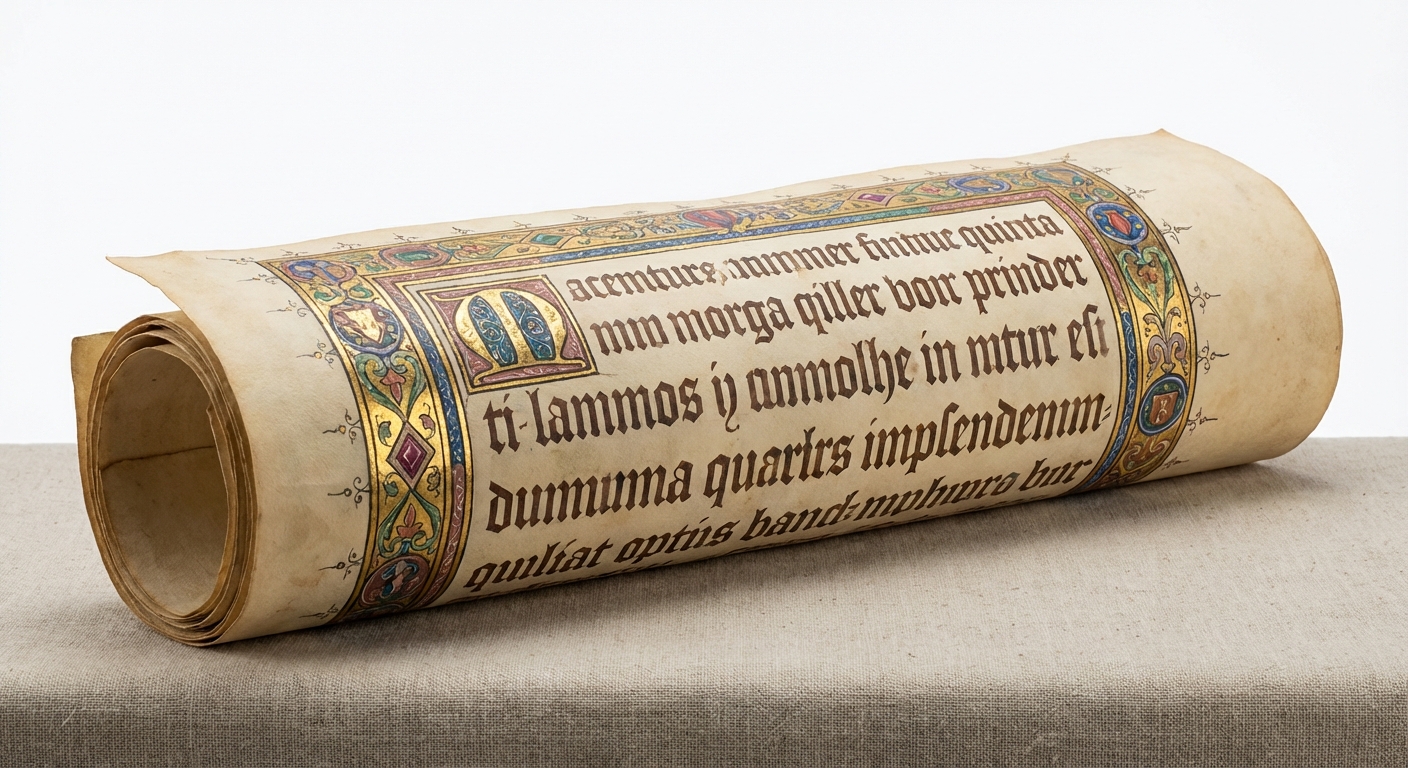 Macemturs, nummer finituc quinta
mm morga qiller boir prinder
ti-lammos ij anmolhe in mtur eſt
dummma quarlrs impſendenim=
quiliat optús band:mphwro bor